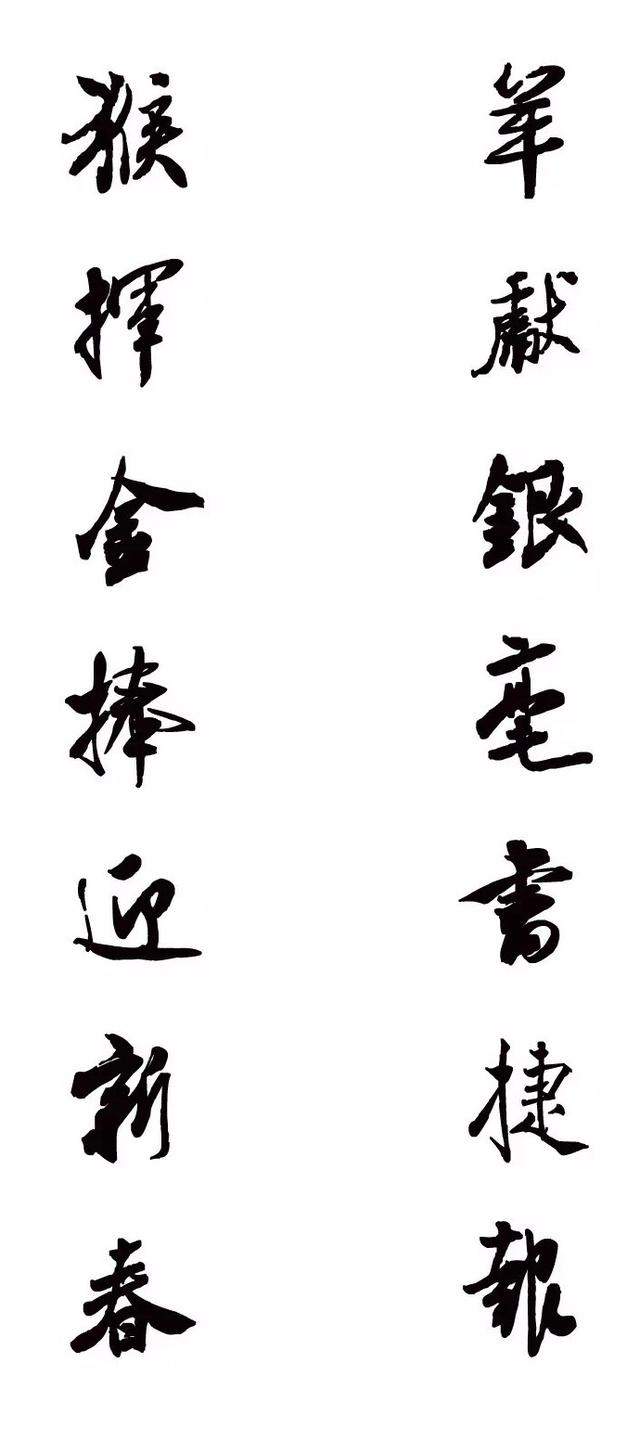 羊獻銀毫書捷報
猴揮金捧迎新春